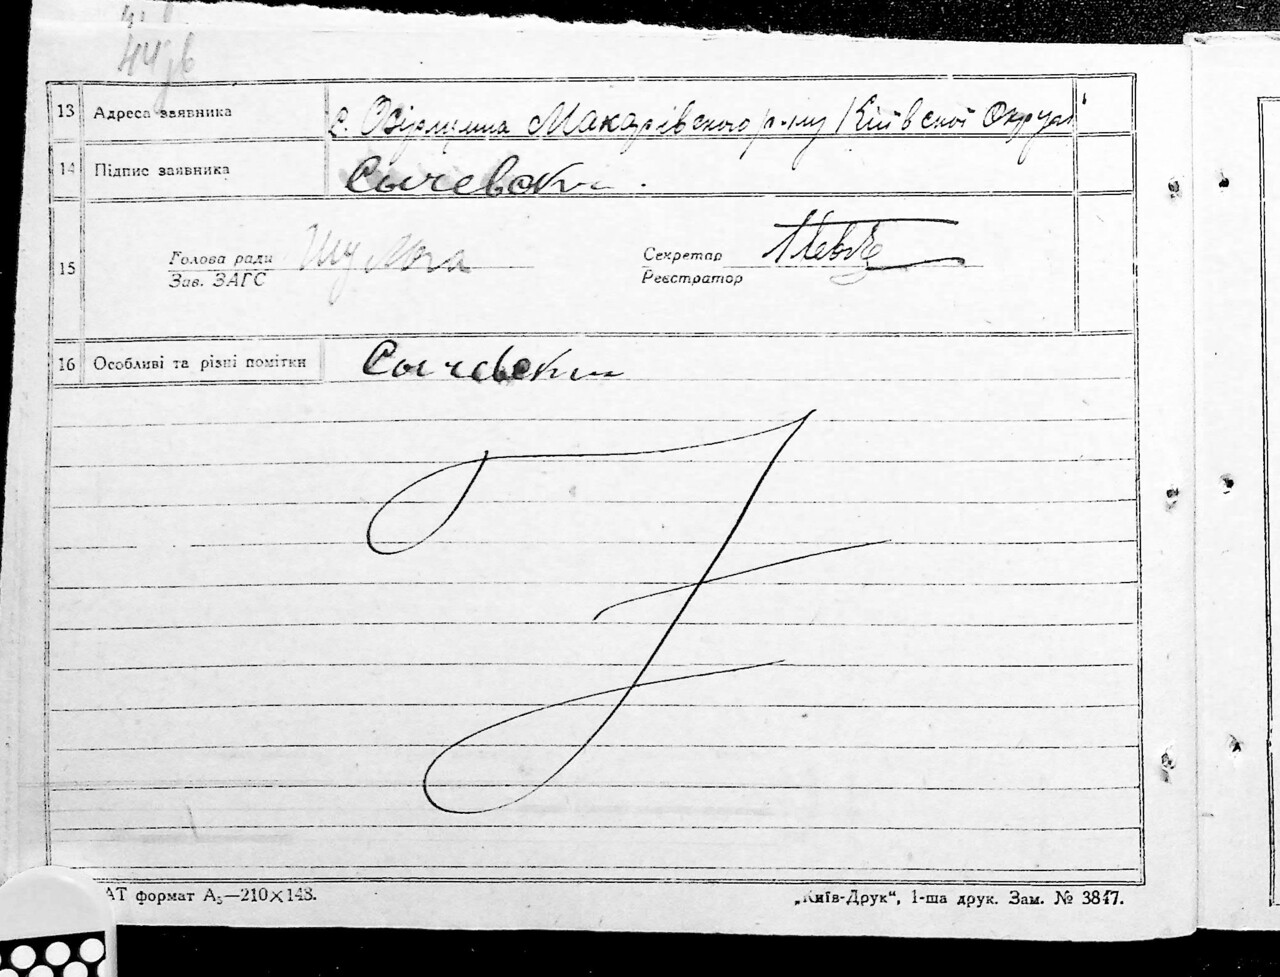 44 зв
13 Адреса заявника с. Макарівського р-ну Київської Округи
14 Підпис заявника Сычевски
15 Голова ради Шульга Секретар
Зав. ЗАГС Реєстратор
16 Особливі та різні помітки Сычевски
АТ формат А₅—210×148. „Київ-Друк“, 1-ша друк. Зам. № 3847.